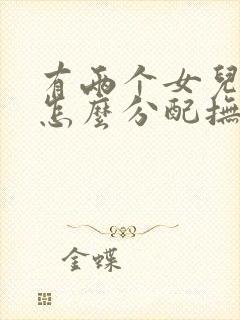 有兩个女兒
怎麼分配撫
金蝶